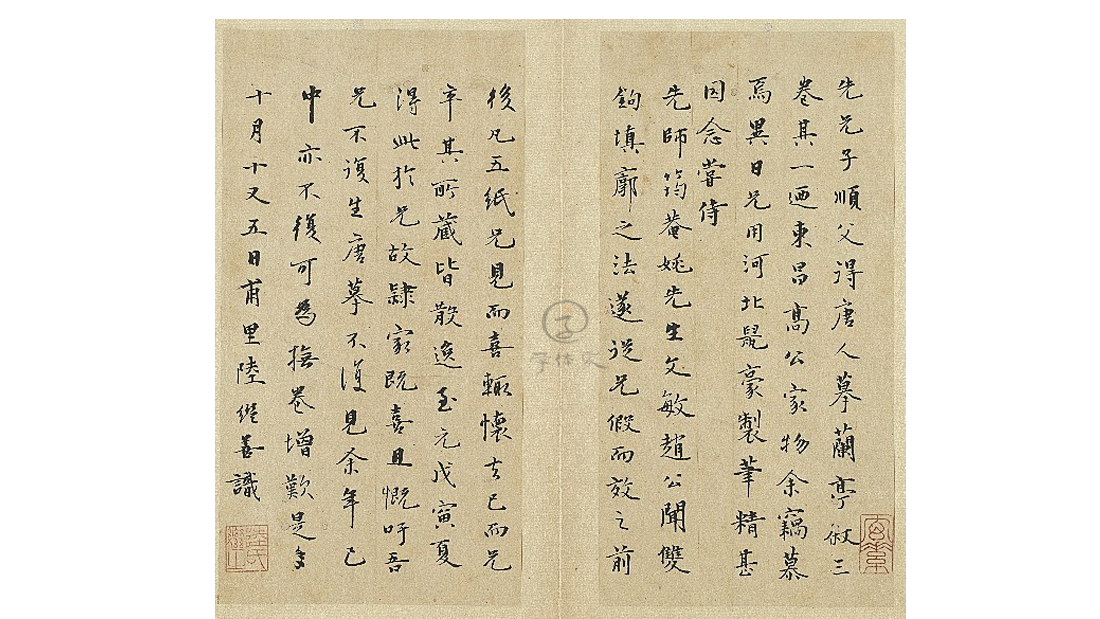 先兄子順父得唐人摹蘭亭敘三
卷其一迺東昌高公家物余竊慕
焉異日兄用河北鼠豪製筆精甚
因念嘗侍
先師筠菴姚先生文敏趙公聞雙
鉤填廓之法遂從兄假而效之前
後凡五紙兄見而喜輒懷去已而兄
卒其所藏皆散逸至元戊寅夏
得此於兄故隸家既喜且慨吁吾
兄不復生唐摹不復見余年已
中亦不復可為撫卷增歎是冬
十月十又五日甫里陸繼善識
字体家